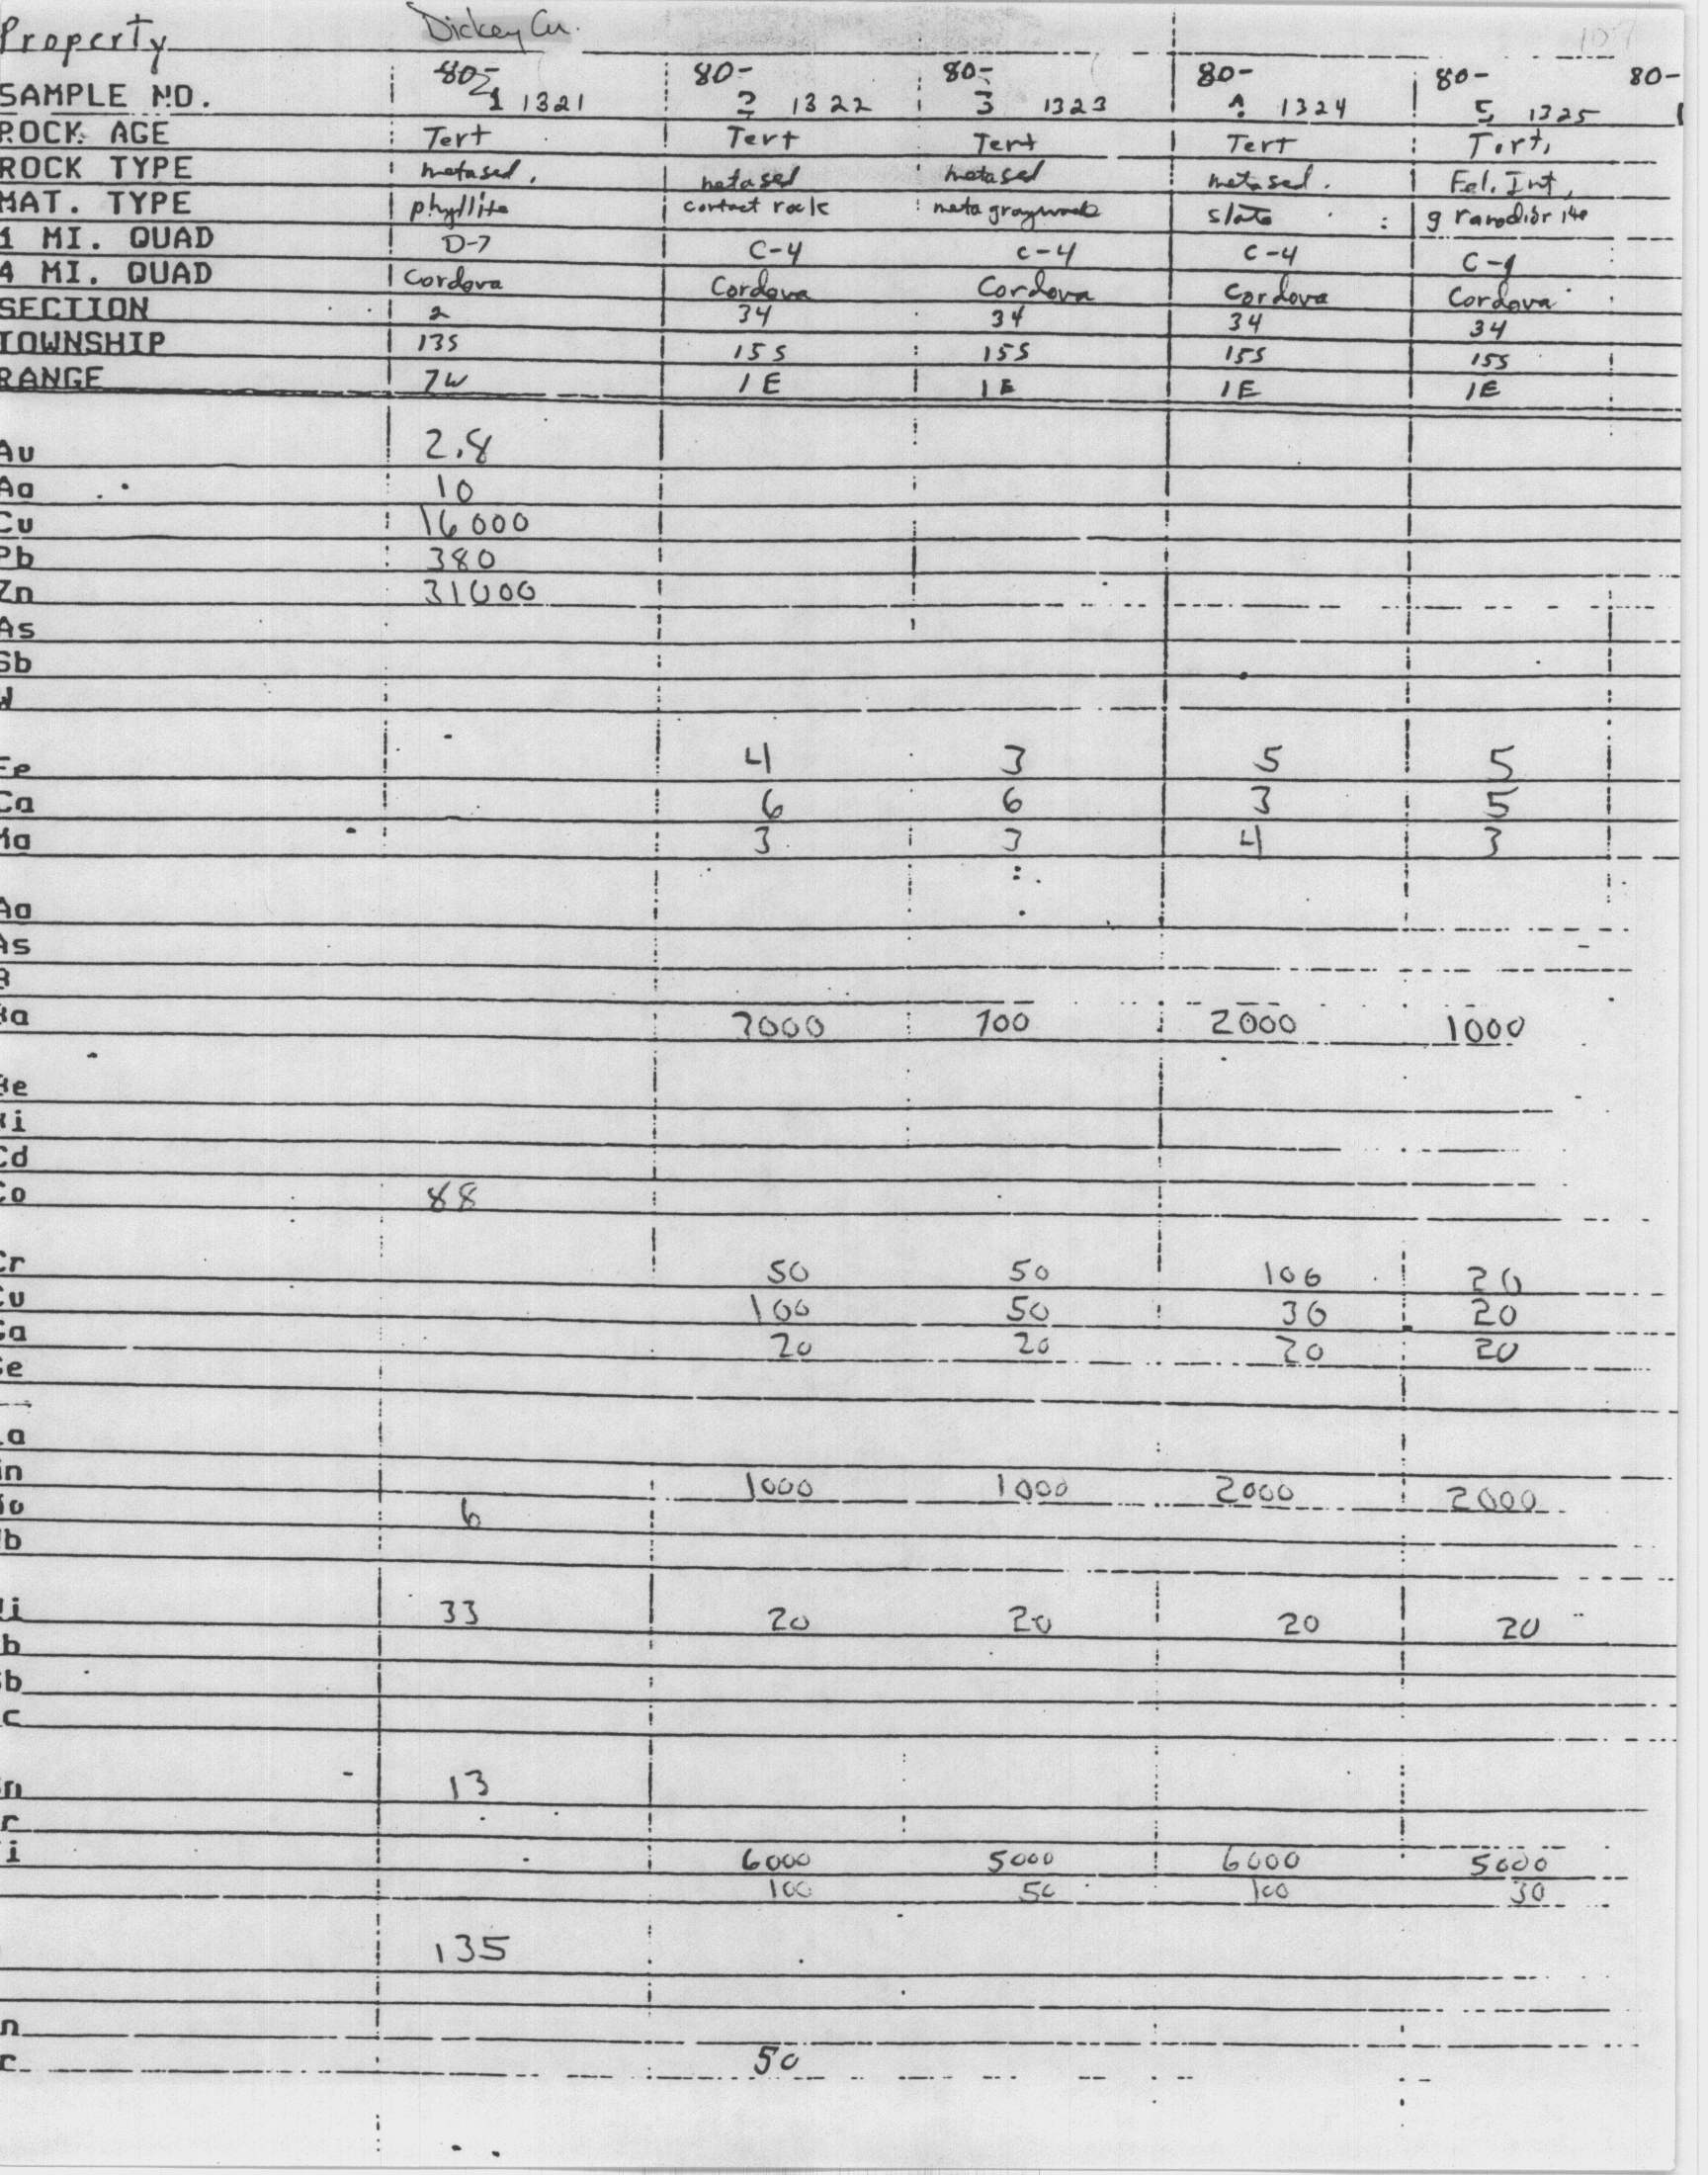 Property Dickey Cu. 107
80- 80- 80- 80- 80- 80-
SAMPLE NO. 1 1321 2 1322 3 1323 1324 5 1325
ROCK AGE Tert Tert Tert Tert Tert.
ROCK TYPE metased. metased metased metased. Fel. Int.
MAT. TYPE phyllite contact rock metagraywacke slate granodiorite
1 MI. QUAD D-7 C-4 C-4 C-4 C-4
4 MI. QUAD Cordova Cordova Cordova Cordova Cordova
SECTION 2 34 34 34 34
TOWNSHIP 13S 15S 15S 15S 15S
RANGE 7W 1E 1E 1E 1E
Au 2.8
Ag 10
Cu 16000
Pb 380
Zn 31000
As
Sb
W
Fe 4 3 5 5
Ca 6 6 3 5
Mg 3 3 4 3
Ag
As
B
Ba 700 2000 1000
Be
Bi
Cd
Co 88
Cr 50 50 100 20
Cu 100 50 30 20
Ga 20 20 20 20
Ge
La
Mn 1000 1000 2000 2000
Mo 6
Nb
Ni 33 20 20 20 20
Pb
Sb
Sc
Sn 13
Sr
Ti 6000 5000 6000 5000
100 50 100 30
135
n
r 50